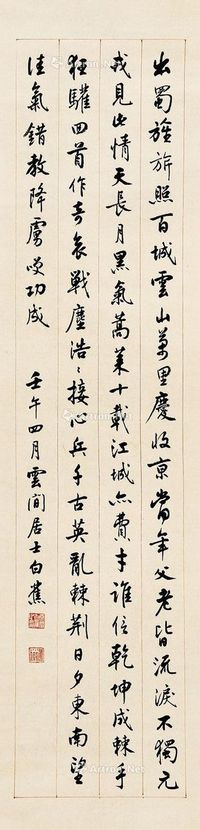 出蜀旌旂照百城雲山萬里慶收京當年父老皆流淚不獨元
戎見此情天長月黑氣蒿萊十載江城亦費才誰信乾坤成棘手
狂驩四首作奇哀戰塵浩〻接心兵千古英亂棘荆日夕東南望
佳氣錯教降虜笑功成
壬午四月雲間居士白蕉